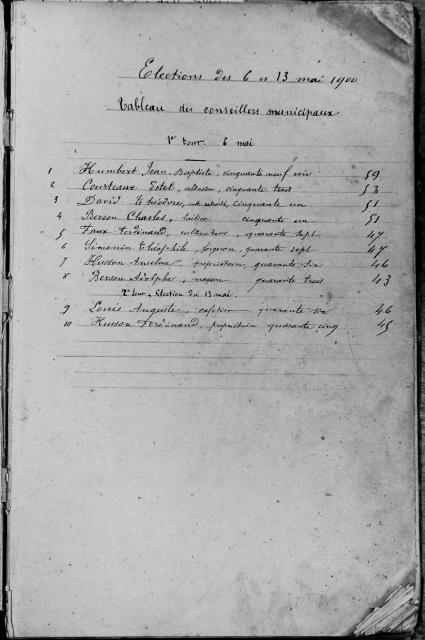 Elections des 6 et 13 mai 1900
Tableau des conseillers municipaux
1er tour. 6 mai
1 Humbert Jean-Baptiste, cinquante neuf voix 59
2 Courteaux Estel, cinquante trois 53
3 David Théodore, cinquante un 51
4 Berson Charles, laitier cinquante un 51
5 Faux Ferdinand, cultivateur, quarante sept 47
6 Simonin Théophile, vigneron, quarante sept 47
7 Husson Anselme, propriétaire, quarante six 46
8 Berson Adolphe, maçon quarante trois 43
2e tour. Election du 13 mai.
9 Louis Auguste, cafetier quarante six 46
10 Husson Ferdinand, propriétaire quarante cinq 45